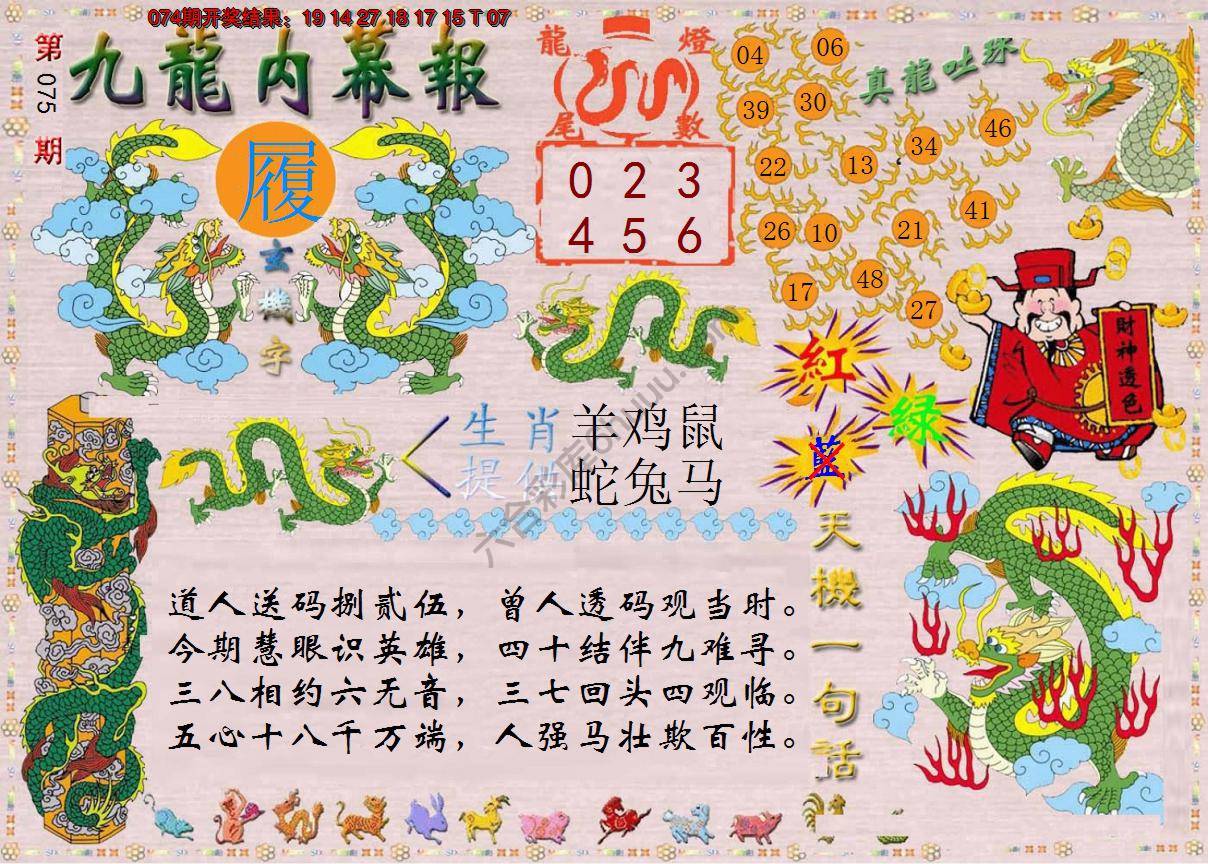 074期开奖结果：19 14 27 18 17 15 T 07
第075期
九龍内幕報
履
玄機字
龍燈
尾數
0 2 3
4 5 6
真龍吐珠
04 06
39 30
22 13 34 46
26 10 21 41
17 48 27
財神透色
紅
綠
藍
生肖 羊鸡鼠
提供 蛇兔马
六合彩库
天機一句話
道人送码捌贰伍，曾人透码观当时。
今期慧眼识英雄，四十结伴九难寻。
三八相约六无音，三七回头四观临。
五心十八千万端，人强马壮欺百性。